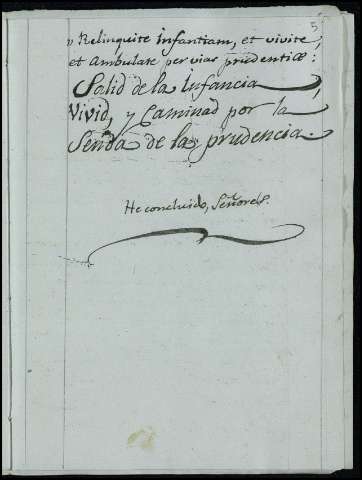 5
» Relinquite infantiam, et vivite,
et Ambulate per vias prudentiæ:
Salid de la Infancia,
Vivid, y Caminad por la
Senda de la prudencia.
He concluido, Señores.